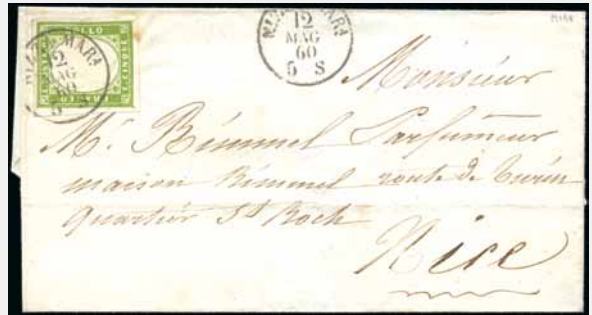 12
MAG
60
5 S
MAR.A
12
MAG
60
BOLLO
Monsieur
Mr. Rimmel Parfumeur
maison Rimmel route de Turin
Quartier St Roch
Nice